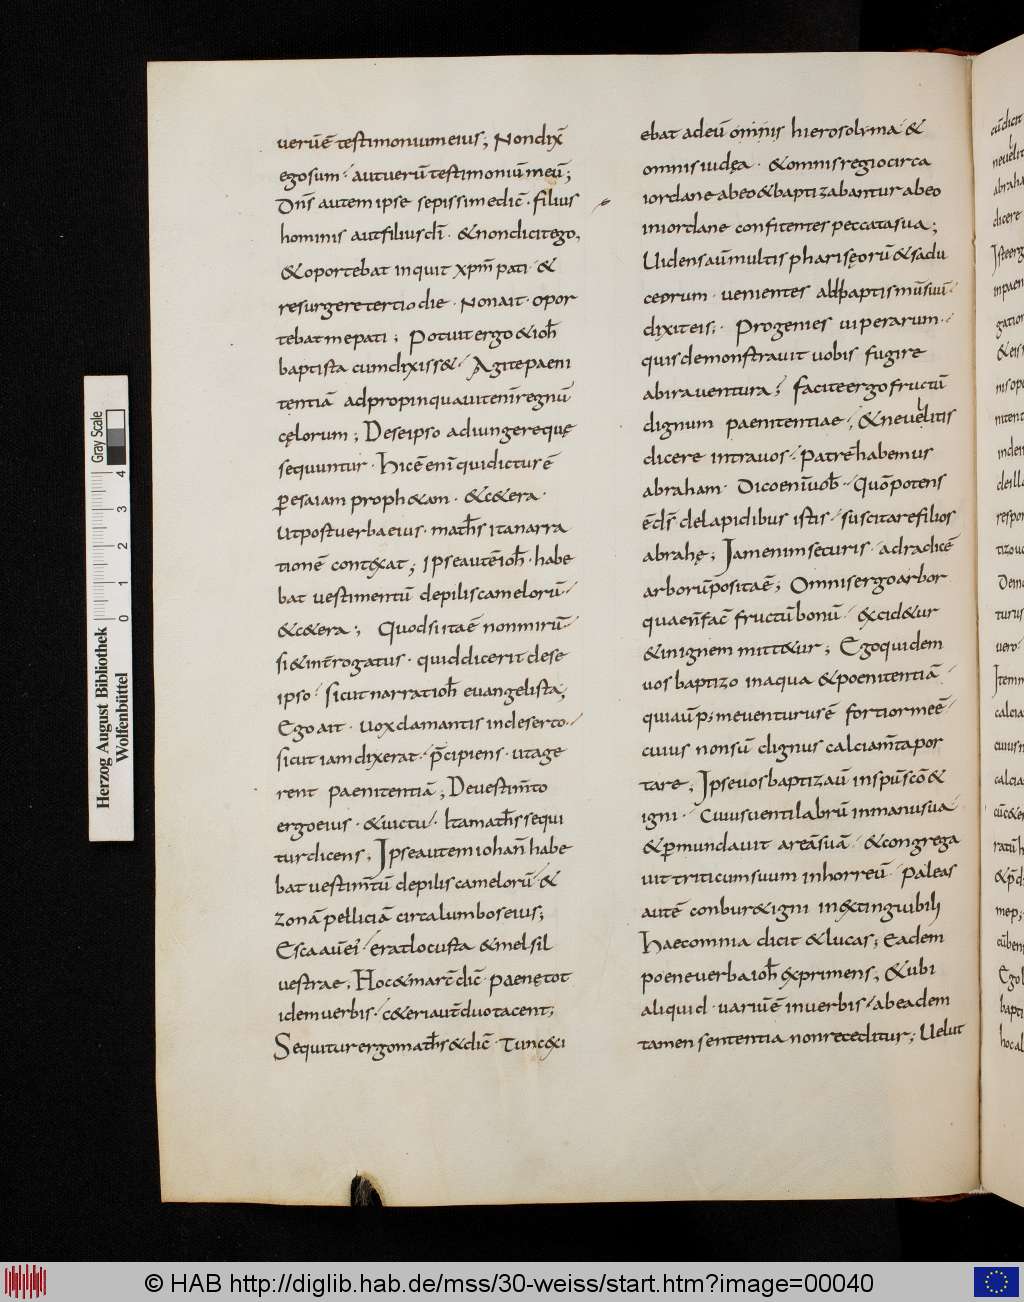 uerūē testimonium eius; Non dix̄
ego sum· aut uerū testimoniū meū;
Dn̄s autem ipse sepissime dic̄· filius
hominis aut filius dī· & non dicit ego,
& oportebat inquit xp̄m pati· &
resurgere tertio die· Non ait· opor
tebat me pati; Potuit ergo & ioh̄
baptista cum dixiss&· Agite paeni
tentiā adpropinquauit enī regnū
cęlorum; De se ipso adiungere quę
sequuntur· Hic ē enī qui dictur ē
ꝑ esaiam proph&am· & c&era·
Ut post uerba eius· math̄s ita narra
tionē cont&xat; Ipse autē ioh̄· habe
bat uestimentū de pilis camelorū·
& c&era; Quod si ita ē non mirū·
si & int̄rogatus· quid dicerit de se
ipso· sicut narrat ioh̄ euangelista;
Ego ait· uox clamantis in deserto·
sicut iam dixerat· p̄cipiens· ut age
rent paenitentiā; De uestim̄to
ergo eius· & uictu· Ita math̄s sequi
tur dicens; Ipse autem iohan̄ habe
bat uestim̄tū de pilis camelorū· &
zonā pelliciā circa lumbos eius;
Esca aū ei' erat locusta & mel sil
uestrae; Hoc & marc̄ dic̄· paenę tot
idem uerbis· c&eri aut̄ duo tacent;
Sequitur ergo math̄s & dic̄· Tunc &xi
ebat ad eū omnis hierosolyma· &
omnis iudęa· & omnis regio circa
iordane ab eo & baptizabantur ab eo
in iordane confitentes peccata sua;
Uidens aū multis pharisęorū & sadu
ceorum· uenientes ad baptismū suū·
dixit eis;· Progenies uiperarum·
quis demonstrauit uobis fugire
ab ira uentura; facite ergo fructū
dignum paenitentiae; & ne uelitis
dicere intra uos· Patrē habemus
abraham· Dico enī uob̄· Quō potens
ē ds̄ de lapidibus istis· suscitare filios
abrahę; Jam enim securis· ad radicē
arborū posita ē; Omnis ergo arbor
quae n̄ fac̄ fructū bonū· &xcid&ur
& in ignem mitt&ur; Ego quidem
uos baptizo in aqua & poenitentiā·
qui aū p; me uenturus ē fortior me ē·
cuius non sū dignus calciam̄ta por
tare; Ipse uos baptiz aū in sp̄u sc̄o &
igni· Cuius uentilabrū in manu sua·
& ꝑmundauit areā suā· & congrega
uit triticum suum in horreū· Paleas
autē conbur& igni in&xtinguibili
Haec omnia dicit & lucas; Eadem
poene uerba ioh̄ &xprimens; & ubi
aliquid· uariū ē in uerbis· ab eadem
tamen sententia non receditur; Uelut
Herzog August Bibliothek
Wolfenbüttel
Gray Scale
0 1 2 3 4
© HAB http://diglib.hab.de/mss/30-weiss/start.htm?image=00040